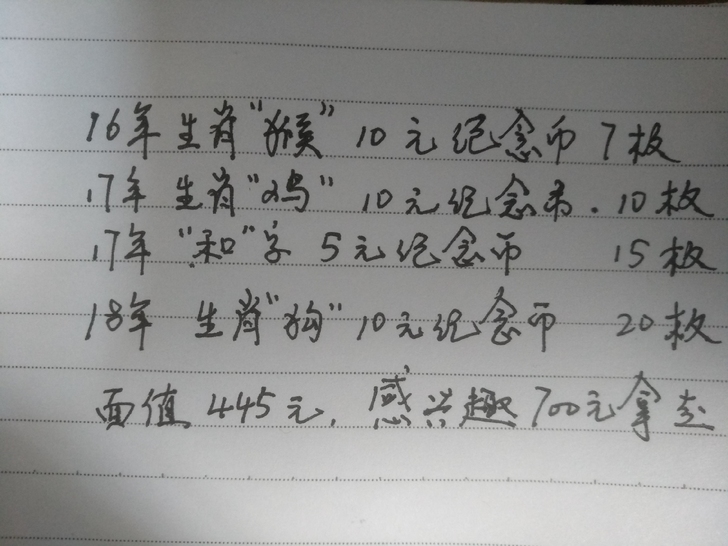 16年生肖"猴"10元纪念币7枚
17年生肖"鸡"10元纪念币.10枚
17年"和"字5元纪念币 15枚
18年 生肖"狗"10元纪念币 20枚
面值445元,感兴趣700元拿走